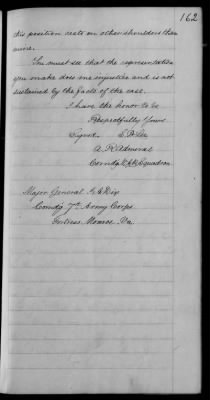 162
his position rests on other shoulders than
mine.
You must see that the representation
you make does me injustice and is not
sustained by the facts of the case.
I have the honor to be
Respectfully Yours
Signed. S. P. Lee
A. R. Admiral
Comdg N. A. B. Squadron
Major General J. A. Dix
Comdg 7th Army Corps
Fortress Monroe Va